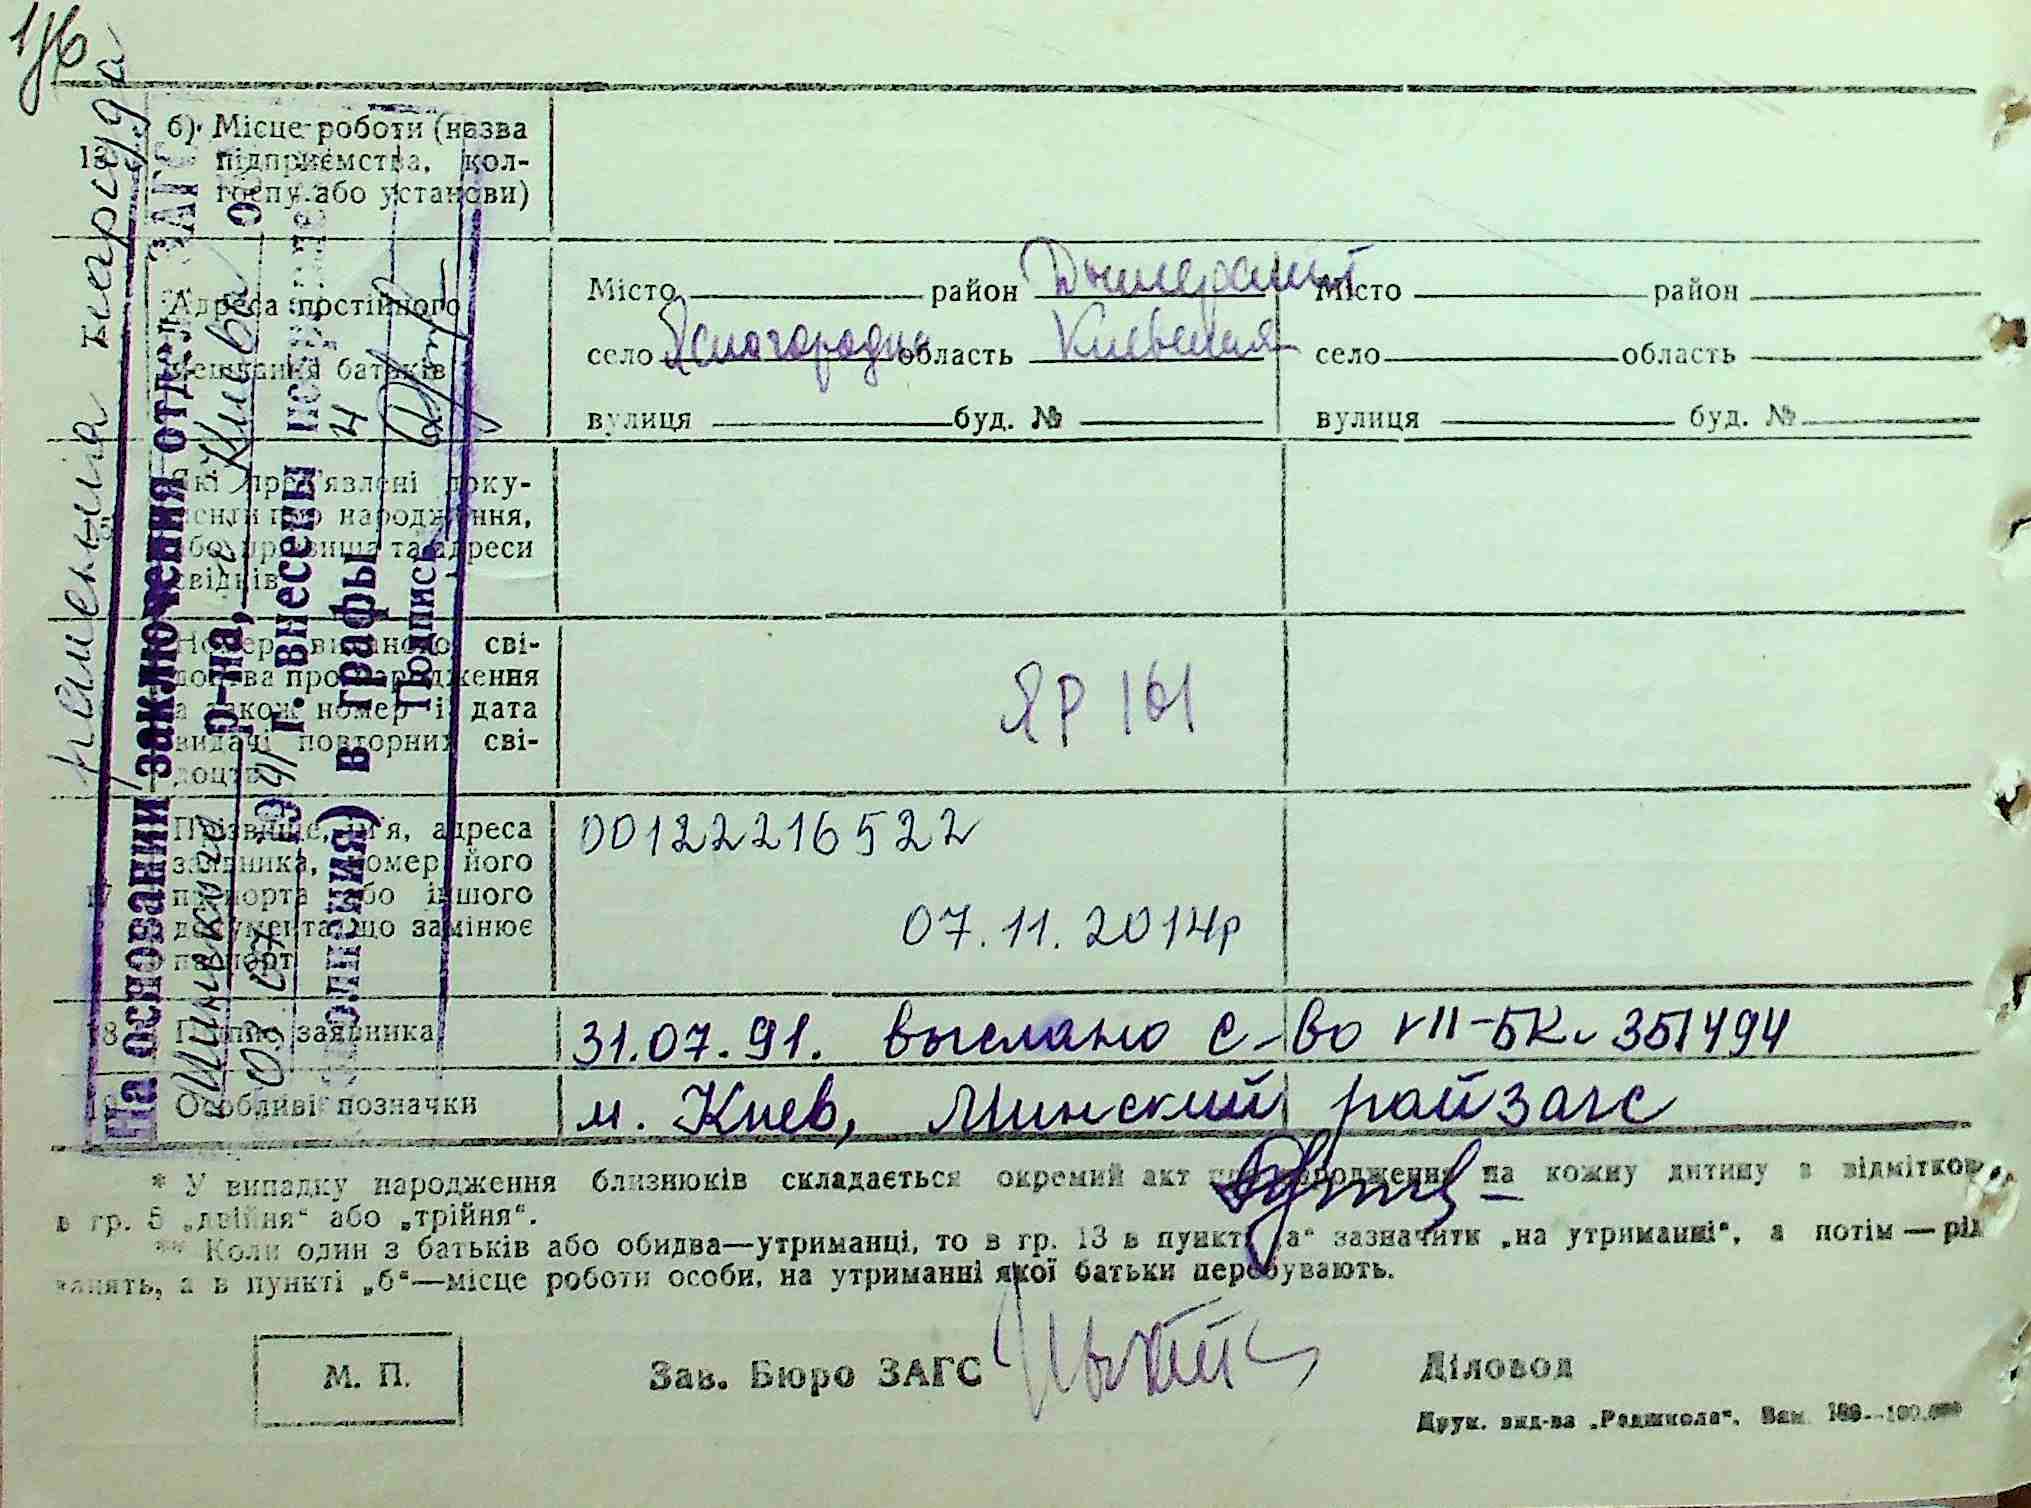 б) Місце роботи (назва
13 підприємства, кол-
госпу або установи)
Адреса постійного
мешкання батьків
Місто район Дымерский
село Ясногородка область Киевская
вулиця буд. №
Місто район
село область
вулиця буд. №
Які пред'явлені доку-
менти про народження,
або прізвища та адреси
свідків
Номер виданого сві-
доцтва про народження
а також номер і дата
видачі повторних сві-
доцтв
ЯР 161
17 Прізвище, ім'я, адреса
заявника, номер його
паспорта або іншого
документа, що замінює
паспорт
00122216522
07.11.2014р
18 Підпис заявника
31.07.91. выслано с-во VII-БК 351494
19 Особливі позначки
м. Киев, Минский райзагс
На основании заключения отдела ЗАГС
Минского р-на, г. Киева
03.07 1991 г. внесены
в графы 4
Подпись
решения нарсуда
* У випадку народження близнюків складається окремий акт про народження на кожну дитину з відміткою
в гр. 5 „двійня“ або „трійня“.
** Коли один з батьків або обидва—утриманці, то в гр. 13 в пункті „а“ зазначити „на утриманні“, а потім — рід
занять, а в пункті „б“—місце роботи особи, на утриманні якої батьки перебувають.
М. П.
Зав. Бюро ЗАГС
Діловод
Друк. вид-ва „Радшкола“.